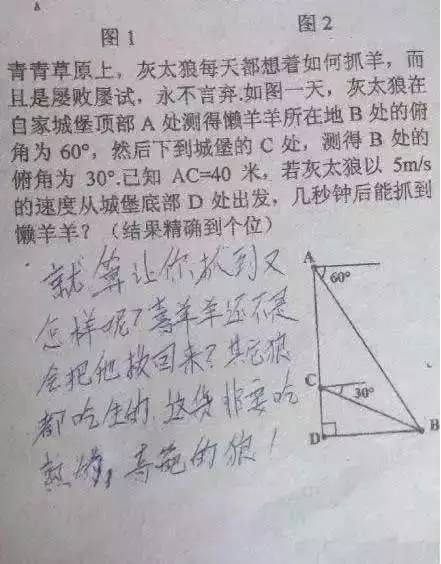 图1 图2
青青草原上，灰太狼每天都想着如何抓羊，而
且是屡败屡试，永不言弃.如图一天，灰太狼在
自家城堡顶部 A 处测得懒羊羊所在地 B 处的俯
角为 60°，然后下到城堡的 C 处，测得 B 处的
俯角为 30°.已知 AC=40 米，若灰太狼以 5m/s
的速度从城堡底部 D 处出发，几秒钟后能抓到
懒羊羊？（结果精确到个位）
就算让你抓到又
怎样呢？喜羊羊还不是
会把他救回来？其它狼
都吃生的，这货非要吃
熟的，奇葩的狼！
A
60°
C
30°
D
B